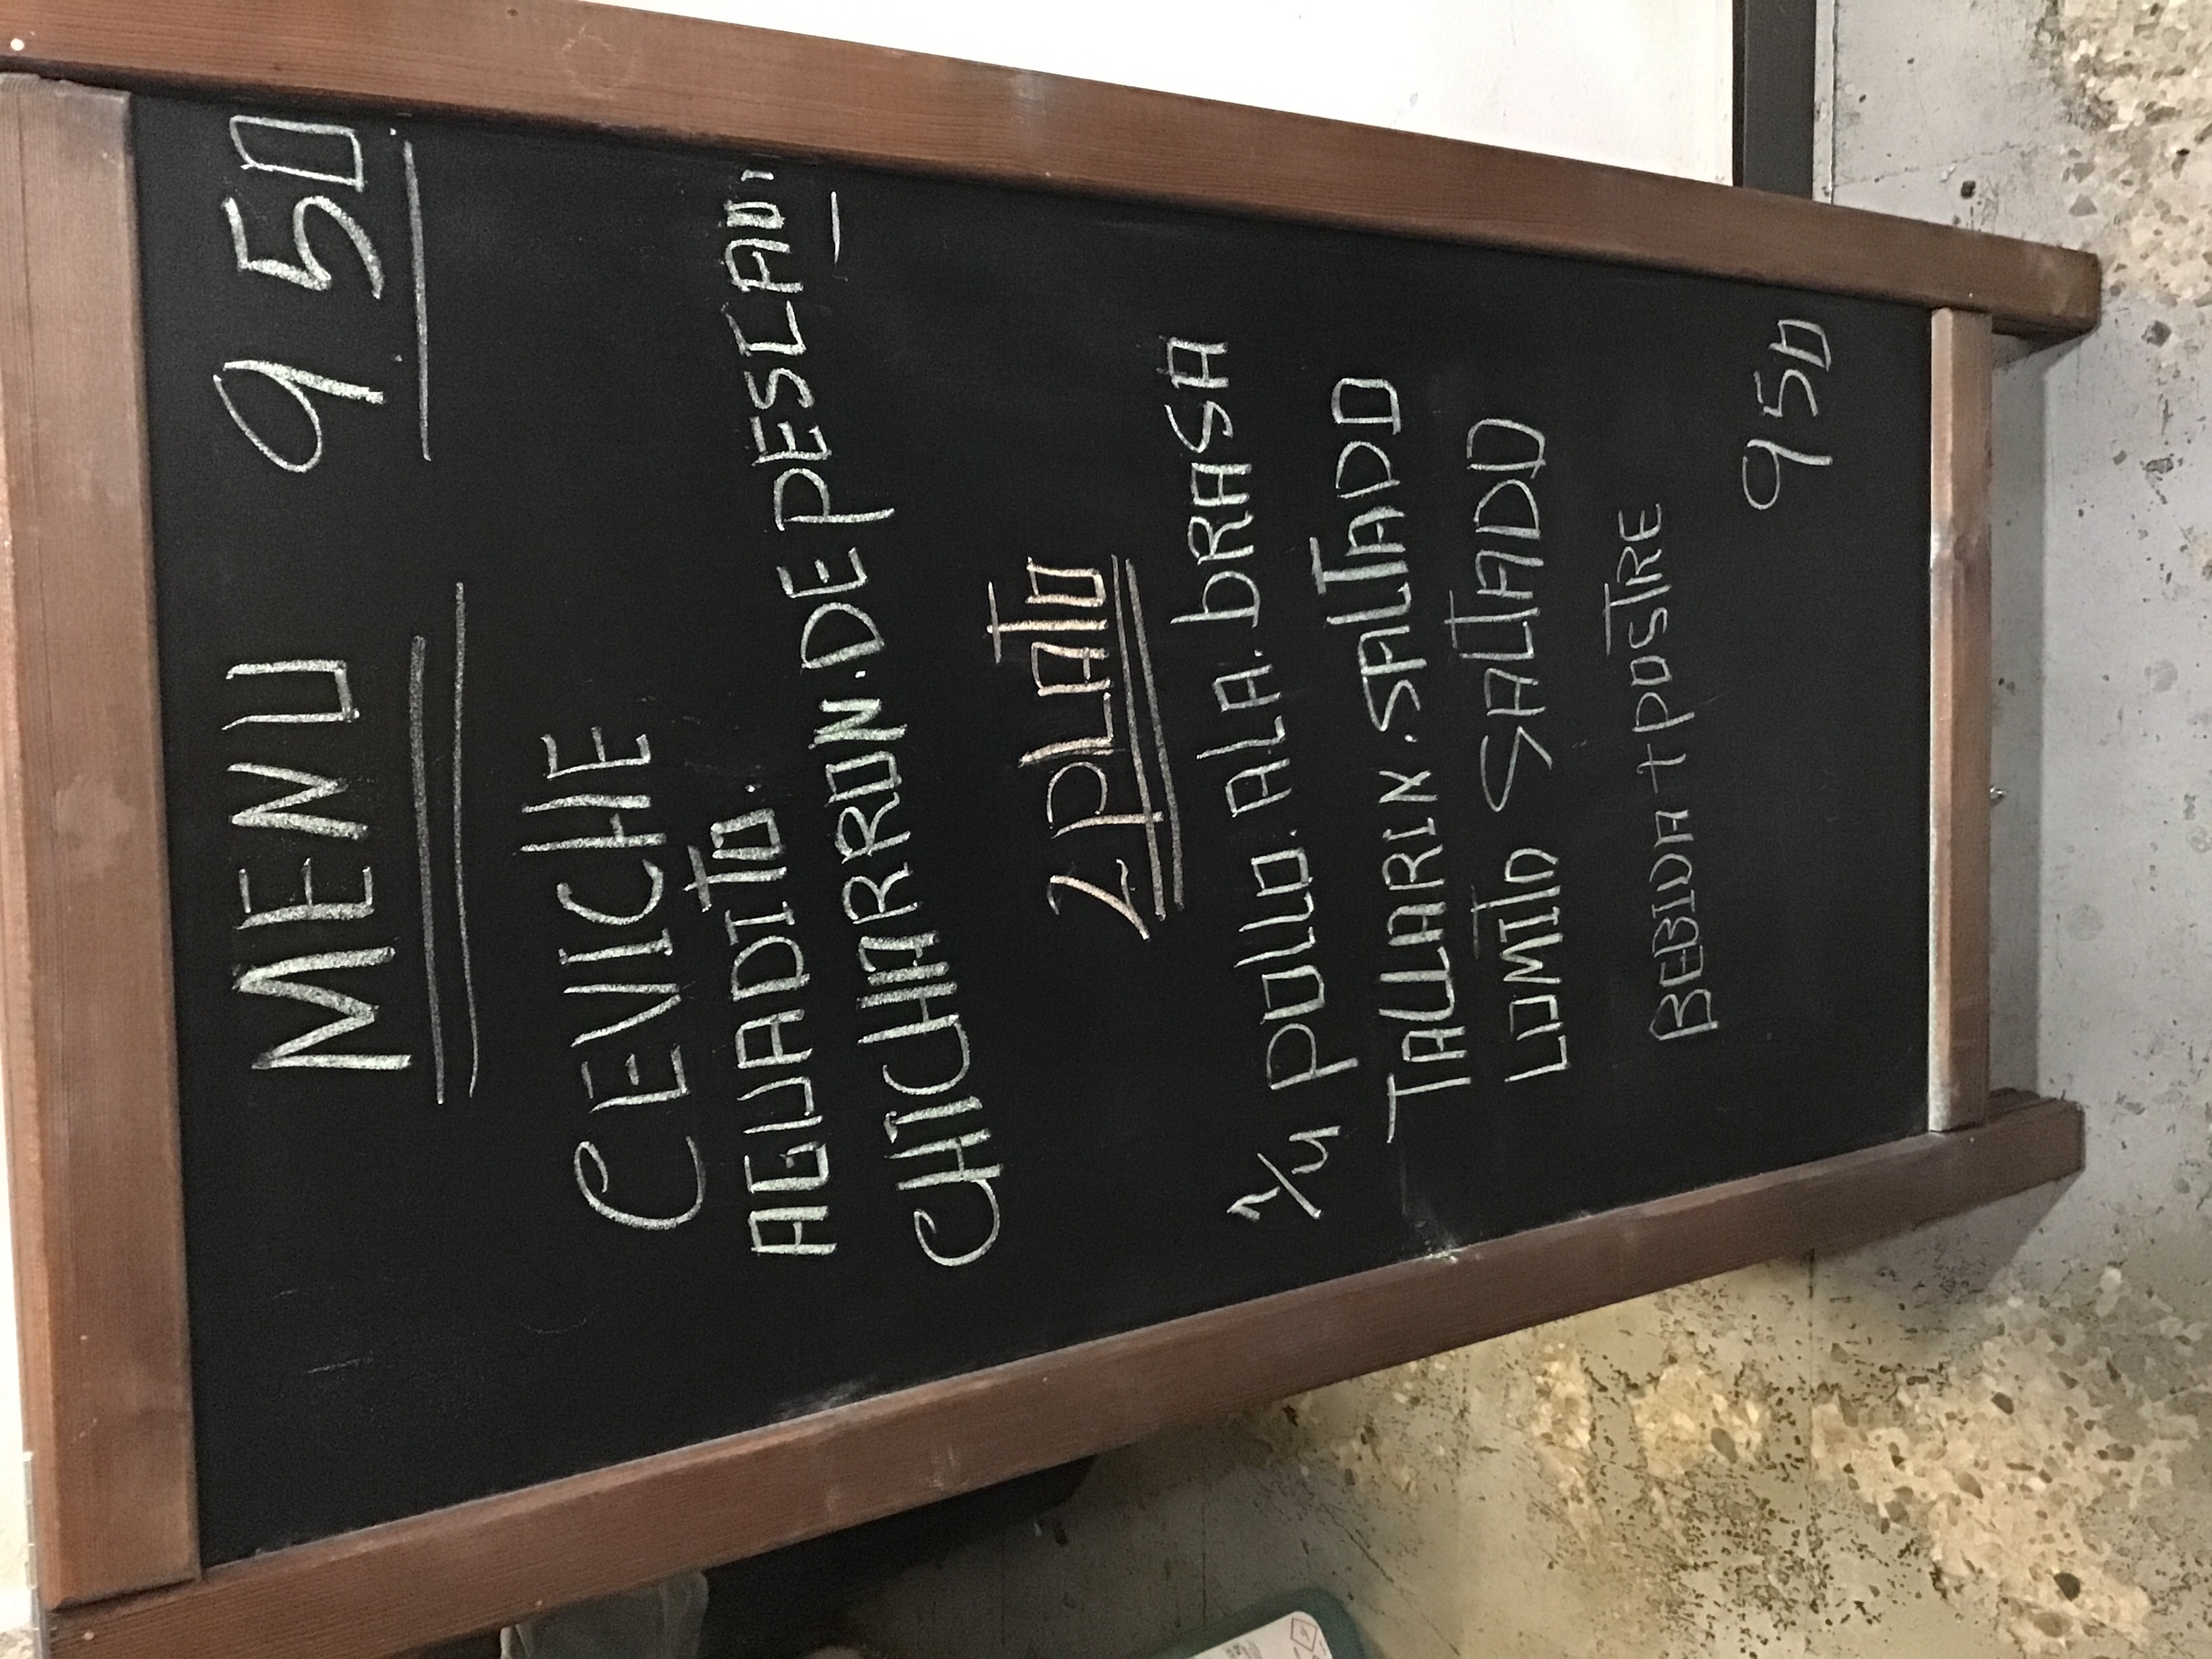 MENU 9 50
CEVICHE
AGUADITO.
CHICHARRON.DE PESCADO
2 PLATO
1/4 POLLO. ALA. bRASA
TALLARIN.SALTADO
LOMITO SALTADO
BEBIDA + POSTRE
9 50